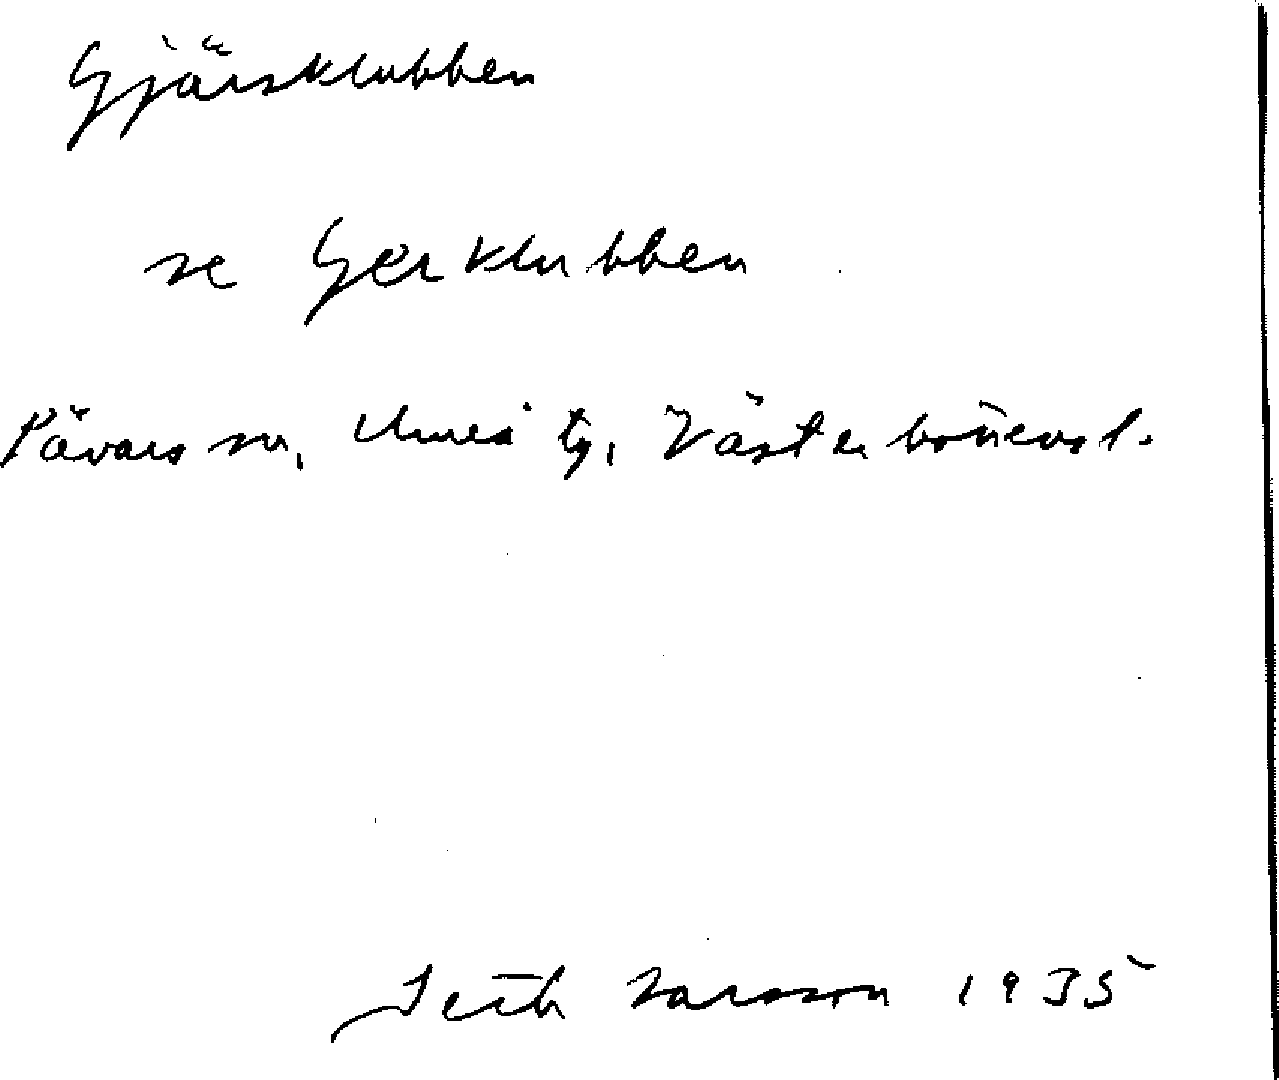 Gjärsklubben
se Gerklubben
Sävars sn, Umeå tg, Västerbottens l.
Seth Larsson 1935